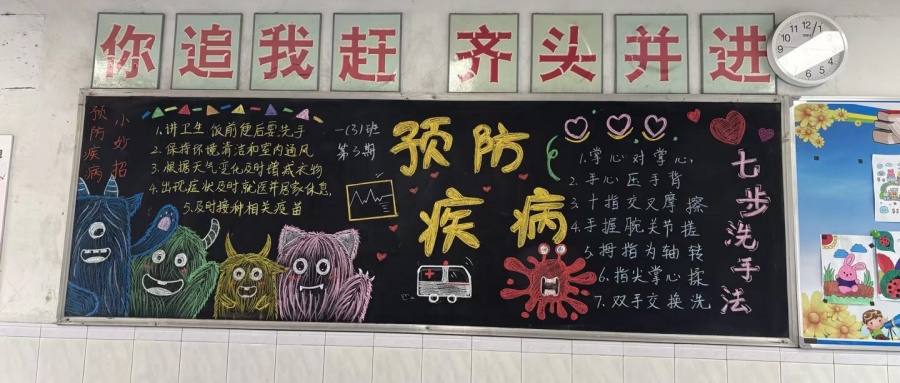 你追我赶 齐头并进
预防疾病
小妙招
1.讲卫生 饭前便后要洗手
2.保持环境清洁和室内通风
3.根据天气变化及时增减衣物
4.出现症状及时就医并居家休息
5.及时接种相关疫苗
一(3)班
第3期
预防
疾病
1.掌心对掌心
2.手心压手背
3.十指交叉摩擦
4.手握腕关节搓
5.拇指为轴转
6.指尖掌心揉
7.双手交换洗
七步洗手法